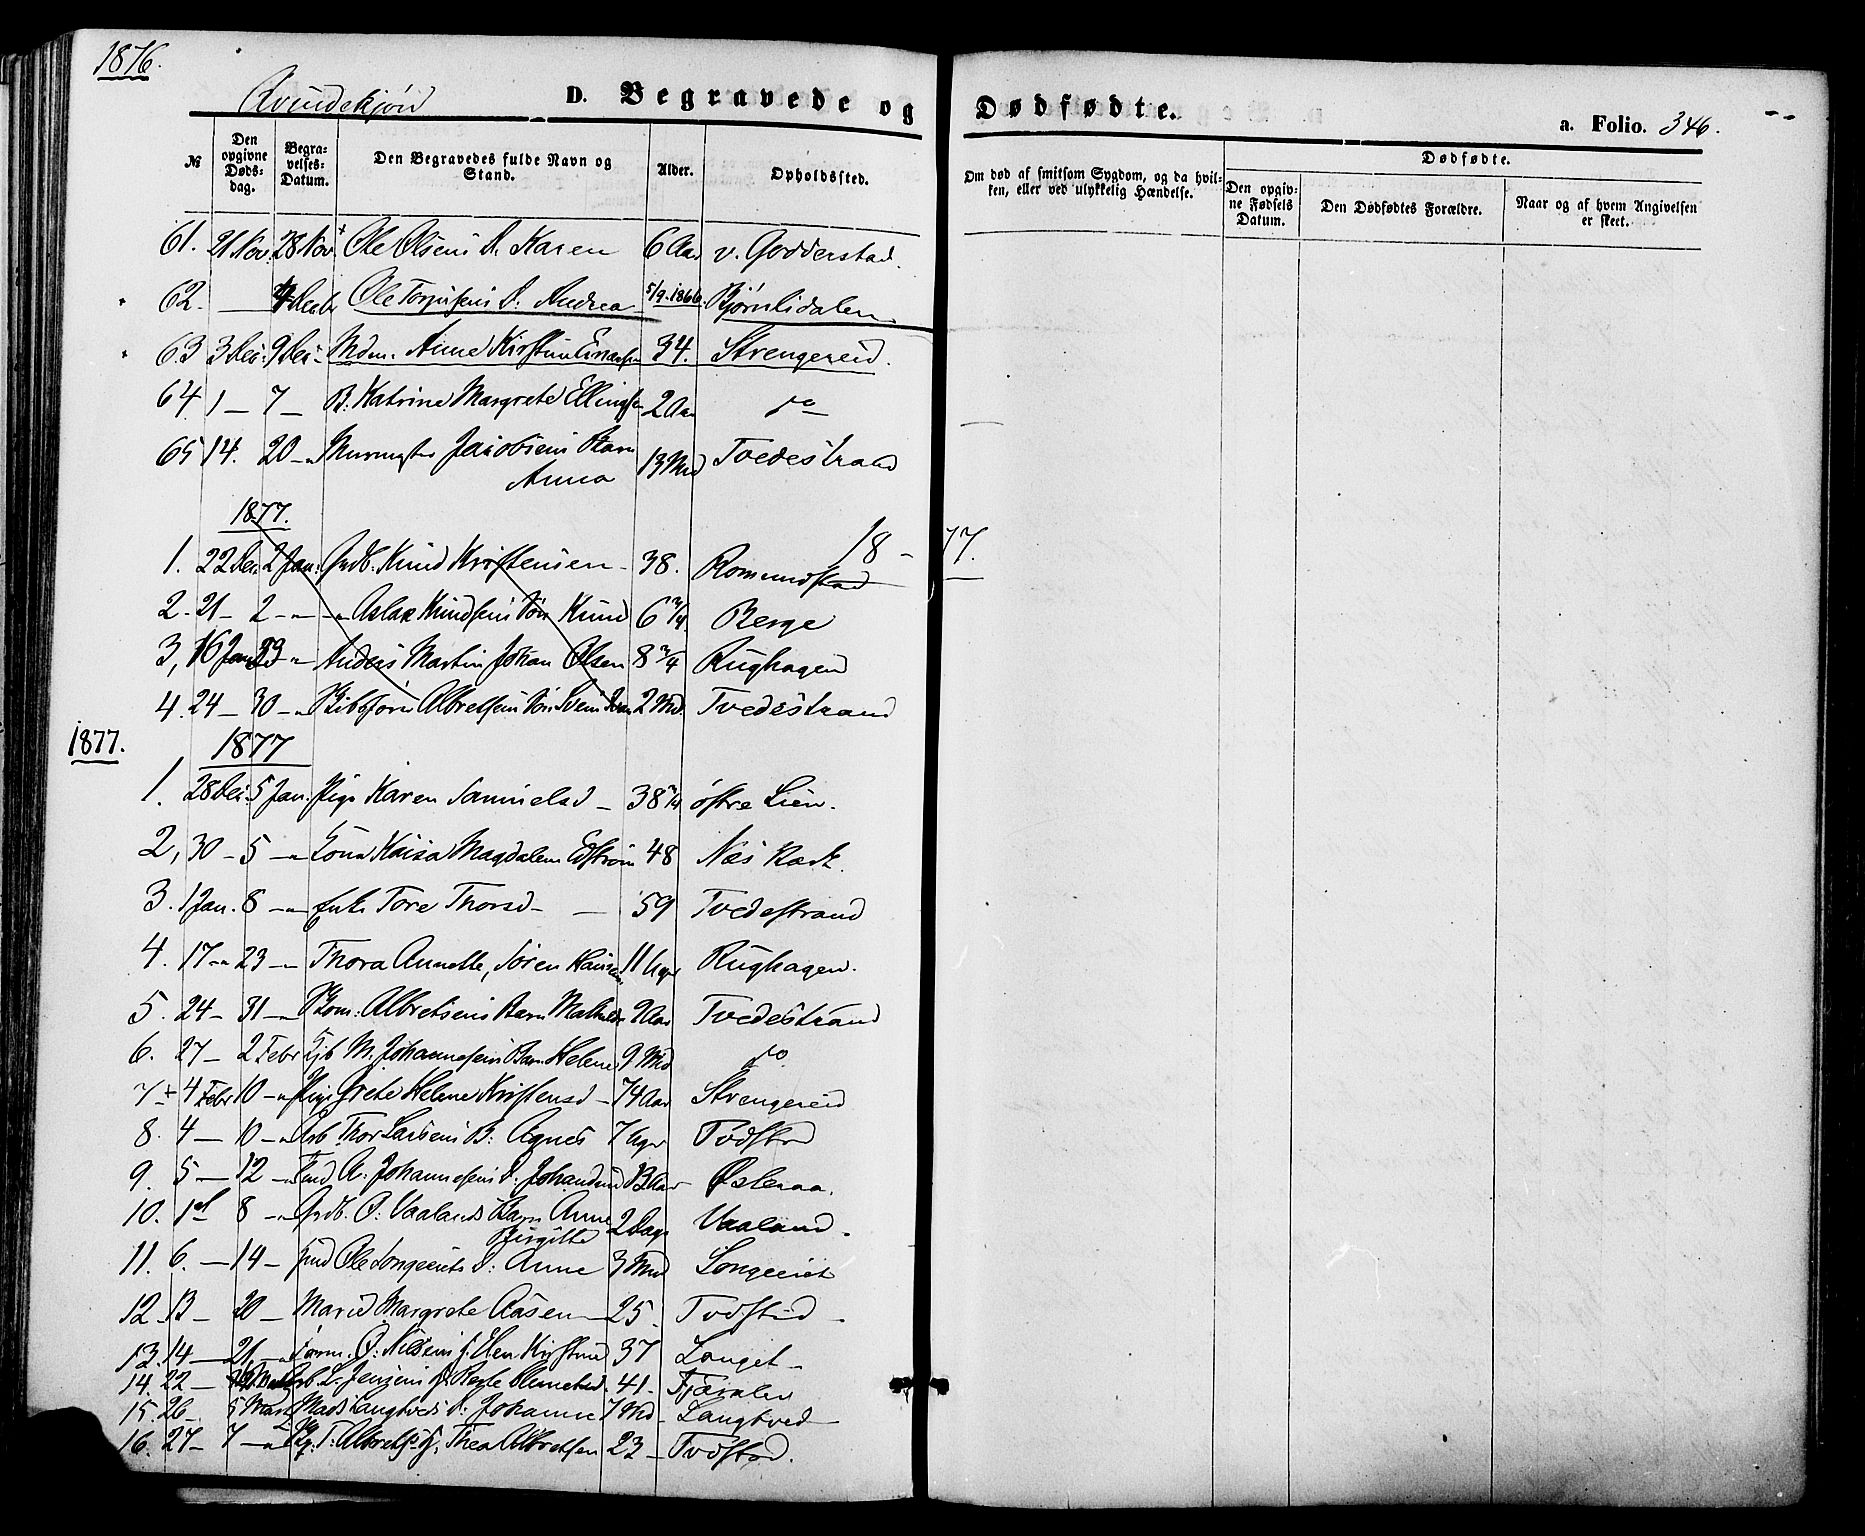 1876.
Qvindekjøn D. Begravede og Dødfødte.
a. Folio. 346.
№ Den opgivne Døds-dag. Begra-velses-Datum. Den Begravedes fulde Navn og Stand. Alder. Opholdssted. Om død af smitsom Sygdom, og da hvil-ken, eller ved ulykkelig Hændelse. Dødfødte. Den opgiv-ne Fødsels Datum. Den Dødfødtes Forældre. Naar og af hvem Angivelsen er skeet.
61. 21 Nov. 28 Nov Ole Olsens D. Karen 6 Aar v. Godderstad.
62. — Decbr Ole Torjusens D. Andrea 5/9.1866. Bjørnlidalen
63 3 Dec. 9 Dec. Mdm. Anne Kirstine 34. Strengereid.
64. 1 — 7 — B. Katrine Margrete Ellingsen 2 Aar do
65 14. 20 — Murmester Jacobsens Barn Anna 13 Md Tvedestrand
1877.
18 - 77.
1. 22 Dec. 2 Jan. Grdb. Knud Kristensen — 38. Romundstad
2. 21 — 2 — Aslak Knudsens Søn Knud 6 3/4 Berge
3, 16 Jan Anders Martin Johan Olsen 8 3/4 Rughagen
4. 24 — 30 — Albretsens Søn Svend 2 Md. Tvedestrand
1877.
1877
1. 28 Dec. 5 Jan. Pige Karen Samuelsd — 38 østre Lien.
2, 30 — 5 — Kona Kaisa Magdalena Edstrøm 48 Næs Værk.
3. 1 Jan. 8 — Enke Tore Thorsd — 59 Tvedestrand
4. 17 — 23 — Thora Annette, Søren Hansens 11 Uger Rughagen.
5. 24 — 31 — Albretsens Barn Mathilde 2 Aar Tvedestrand
6. 27 — 2 Febr M. Johannesens Barn Helene 9 Md do
7 4 Febr 10 — Pige Grete Helene Kristensd — 74 Aar Strengereid
8. 4 — 10 — Arb Thor Larsens B: Agnes 7 Uger Tvdstrd
9. 5 — 12 — A. Johannesens D: Johandine 13 Aar Østeraa.
10. 1 8 — Grdb. O: Vaalands Barn Anne Birgitte 2 Dage Vaaland.
11. 6. — 14 — Ole Songereids D: Anne 3 Md Songereid
12. 13 — 20 — Marie Margrete Aasen 25 Tvdstrd
13. 14 — 21 — O. Nilsens H. Elen Kirstine 37 Langet
14. 22 — L. Jensens 41. Fjæralen
15. 26 — 5 Marts Mads Langtveds D: Johanne 7 Md — Langtved
16. 27 — 7 — T: Albrets. H. Thea Albretsen 23 — Tvdstrd.